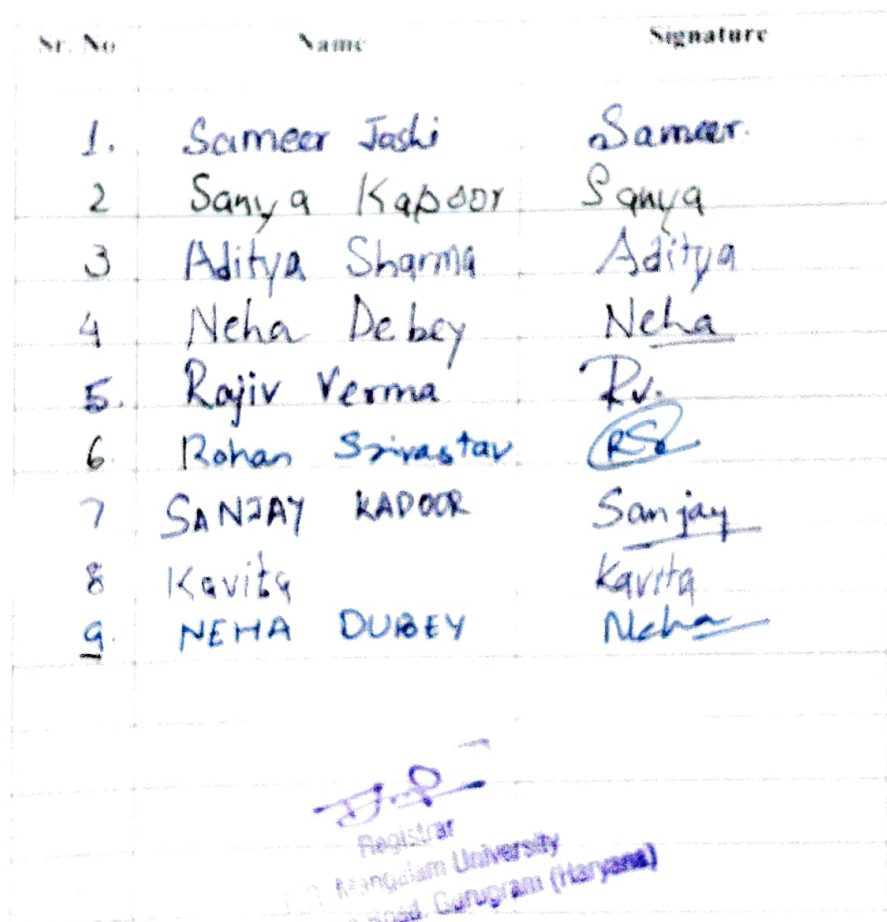 Sr. No Name Signature
1. Sameer Joshi Sameer.
2 Sanya Kapoor Sanya
3 Aditya Sharma Aditya
4 Neha Debey Neha
5. Rajiv Verma Rv.
6 Rohan Srivastav RS
7 SANJAY KAPOOR Sanjay
8 Kavita Kavita
9. NEHA DUBEY Neha
Registrar
Mangalam University
Road, Gurugram (Haryana)